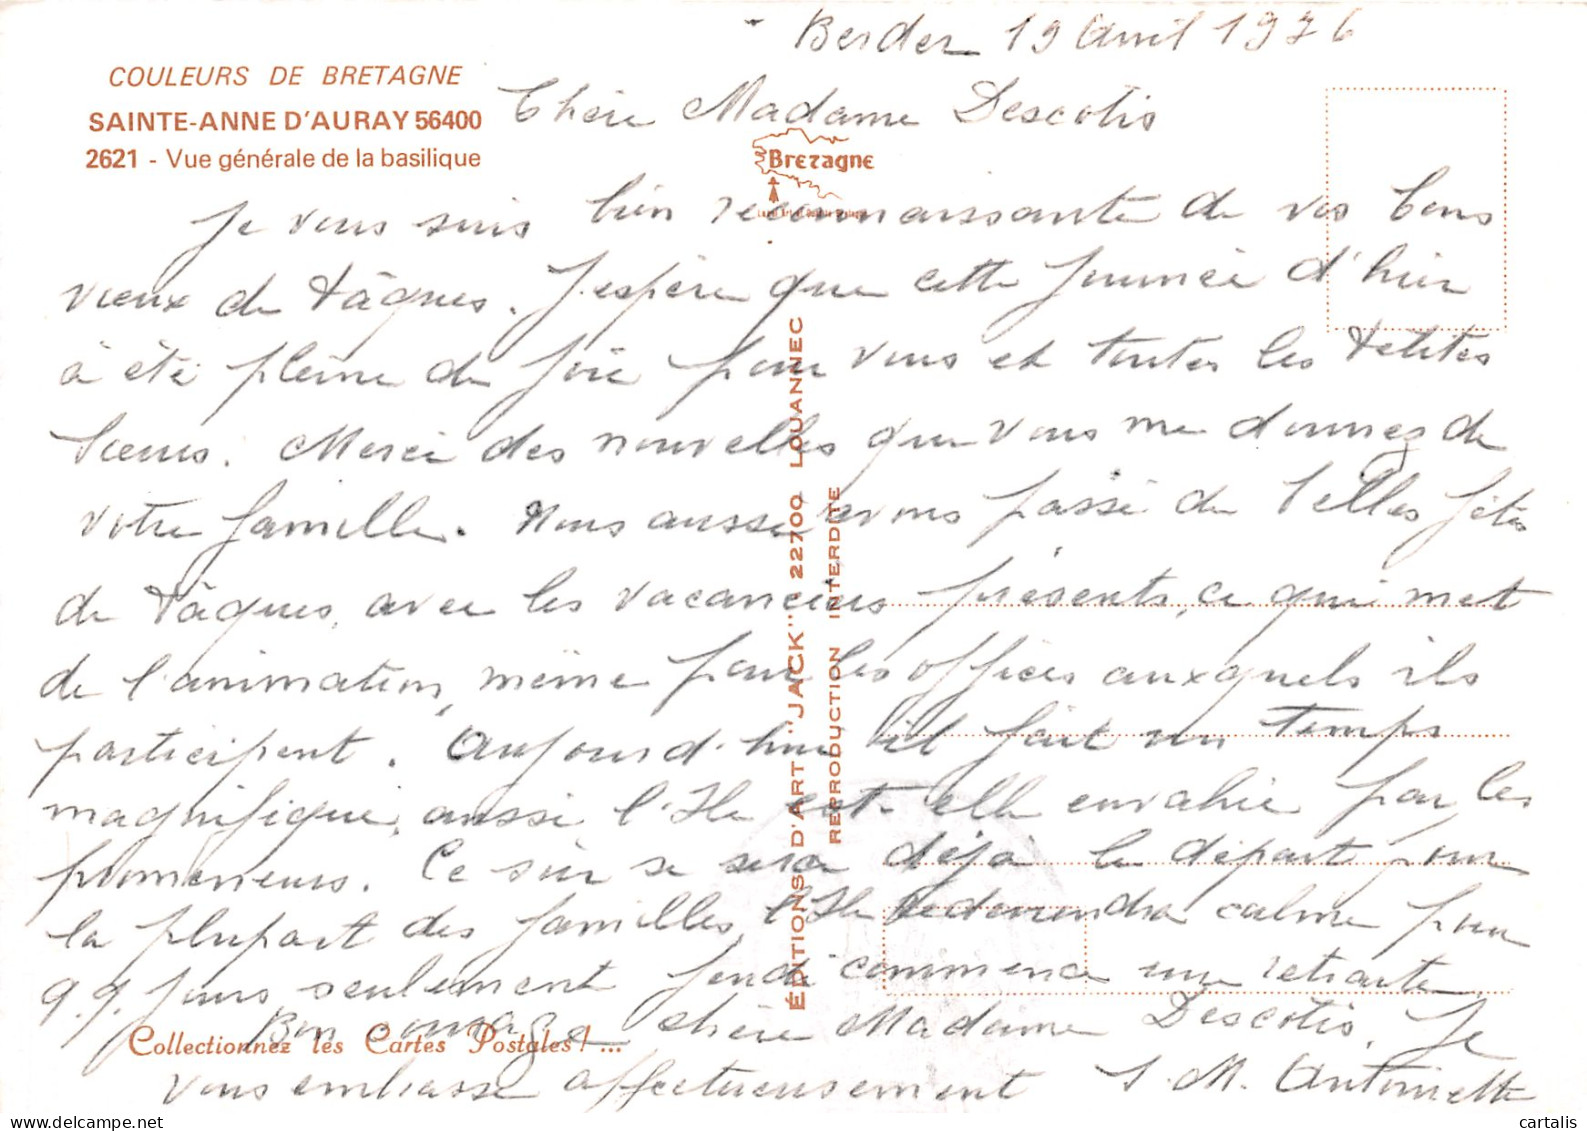 Berder 19 Avril 1976
COULEURS DE BRETAGNE
SAINTE-ANNE D'AURAY 56400
2621 - Vue générale de la basilique
Chère Madame Descotis
Bretagne
Je vous suis bien reconnaissante de vos bons
vœux de Pâques. J'espère que cette journée d'hier
a été pleine de joie pour vous et toutes les Petites
Sœurs. Merci des nouvelles que vous me donnez de
votre famille. Nous aussi avons passé de belles fêtes
de Pâques, avec les vacanciers présents, ce qui met
de l'animation, même pour les offices auxquels ils
participent. Aujourd'hui il fait un temps
magnifique, aussi l'Ile est-elle envahie par les
promeneurs. Ce soir se sera déjà le départ pour
la plupart des familles, l'Ile redeviendra calme pour
q.q. jours seulement jeudi commence une retraite.
Bon courage chère Madame Descotis, Je
vous embrasse affectueusement S. M. Antoinette
Collectionnez les Cartes Postales ! ...
ÉDITIONS D'ART "JACK" - 22700 LOUANNEC
REPRODUCTION INTERDITE
cartalis